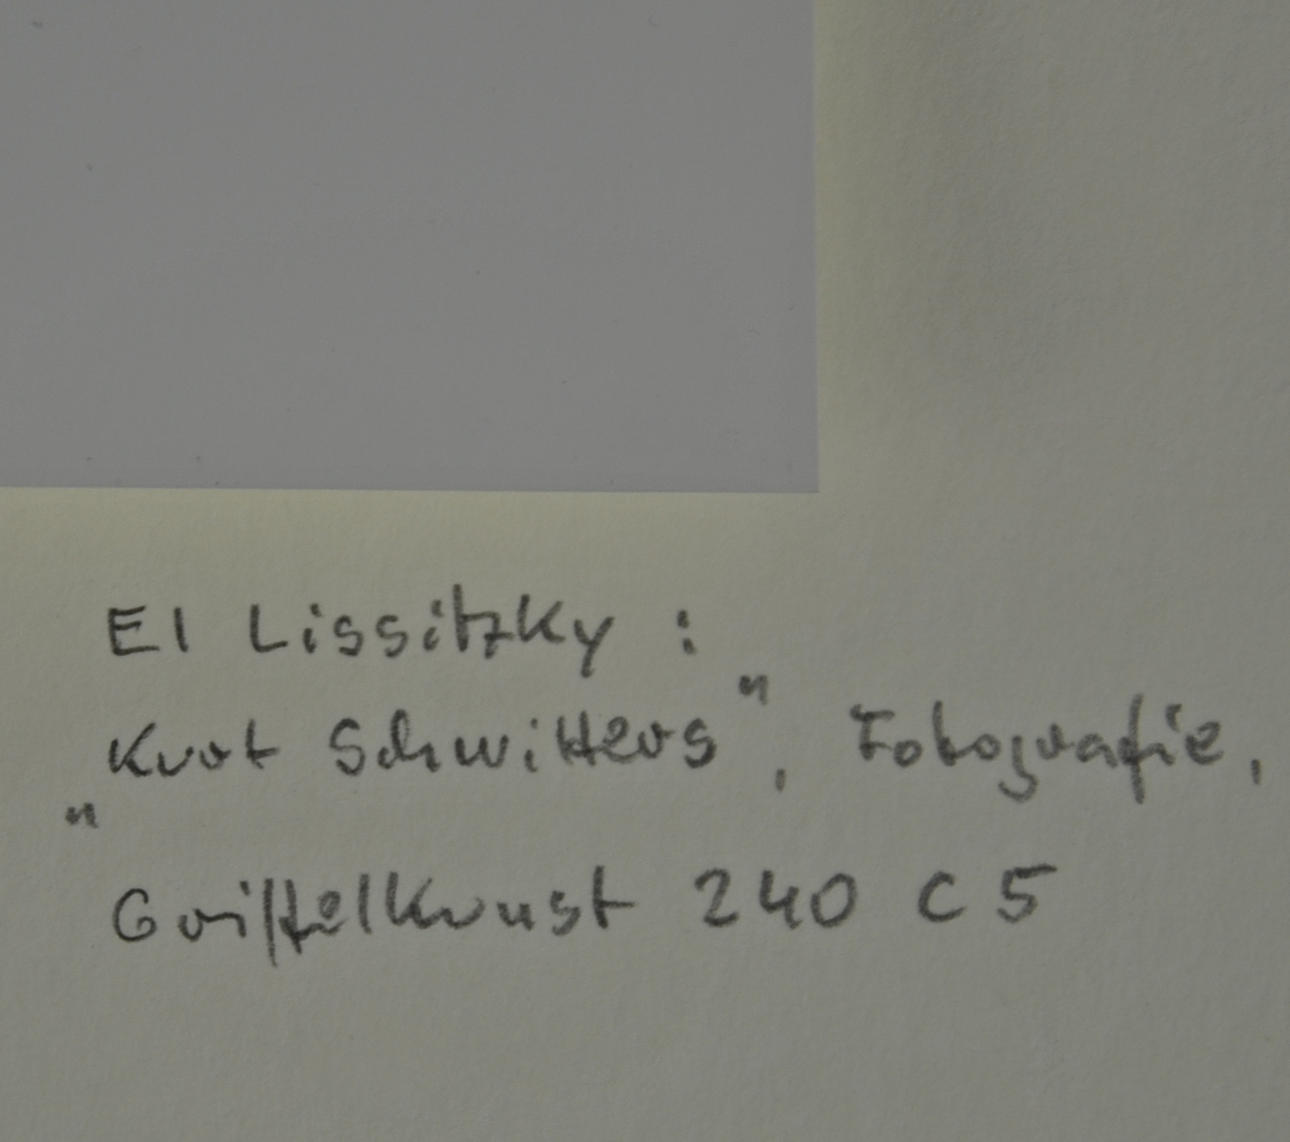 El Lissitzky :
„Kurt Schwitters", Fotografie,
Griffelkunst 240 C 5